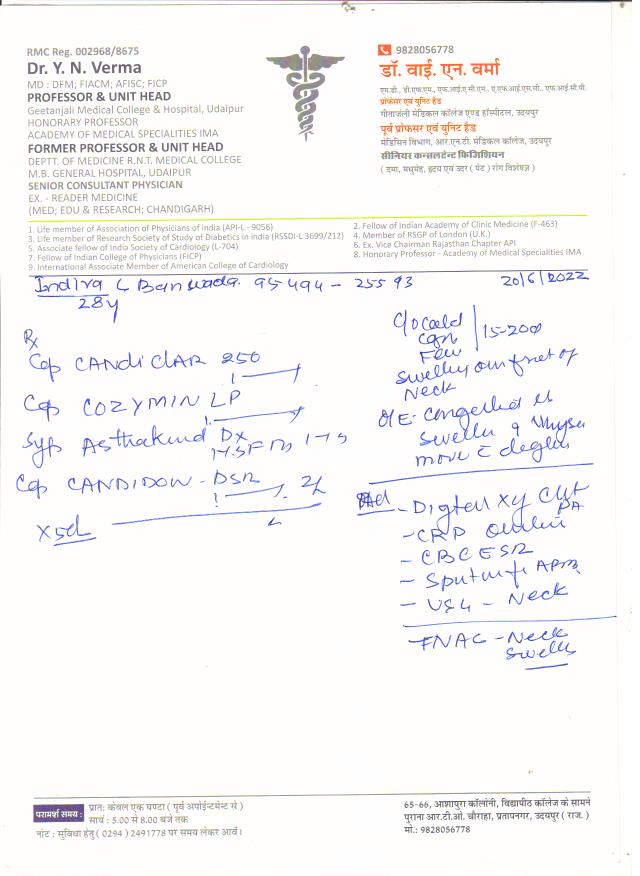 RMC Reg. 002968/8675
Dr. Y. N. Verma
MD : DEM; FIACM; AFISC; FICP
PROFESSOR & UNIT HEAD
Geetanjali Medical College & Hospital, Udaipur
HONORARY PROFESSOR
ACADEMY OF MEDICAL SPECIALITIES IMA
FORMER PROFESSOR & UNIT HEAD
DEPTT. OF MEDICINE R.N.T. MEDICAL COLLEGE
M.B. GENERAL HOSPITAL, UDAIPUR
SENIOR CONSULTANT PHYSICIAN
EX. - READER MEDICINE
(MED; EDU & RESEARCH; CHANDIGARH)
9828056778
डॉ. वाई. एन. वर्मा
एम.डी., डी.एफ.एम., एफ.आई.ए.सी.एम., ए.एफ.आई.एस.सी., एफ.आई.सी.पी.
प्रोफेसर एवं यूनिट हैड
गीतांजली मेडिकल कॉलेज एण्ड हॉस्पीटल, उदयपुर
पूर्व प्रोफेसर एवं यूनिट हैड
मेडिसिन विभाग, आर.एन.टी. मेडिकल कॉलेज, उदयपुर
सीनियर कन्सलटेन्ट फिजिशियन
( दमा, मधुमेह, हृदय एवं उदर ( पेट ) रोग विशेषज्ञ )
1. Life member of Association of Physicians of India (API-L - 9056)
2. Fellow of Indian Academy of Clinic Medicine (F-463)
3. Life member of Research Society of Study of Diabetics in india (RSSDI-L 3699/212)
4. Member of RSGP of London (U.K.)
5. Associate fellow of India Society of Cardiology (L-704)
6. Ex. Vice Chairman Rajasthan Chapter API
7. Fellow of Indian College of Physicians (FICP)
8. Honorary Professor - Academy of Medical Specialities IMA
9. International Associate Member of American College of Cardiology
Indira 95494-25593 20/6/2022
28y
Rx
Cap CANDICLAR 250
Cap COZYMIN LP
Syp Asthakind Dx
Cap CANDIDOM-DSR
x5d
C/o cold
15-20d
swelling on front of
Neck
O/E
- Digital
- CRP
- CBC ESR
- Sputum
- USG - Neck
FNAC - Neck
परामर्श समय :
प्रात: केवल एक घण्टा ( पूर्व अपॉईन्टमेन्ट से )
सायं : 5.00 से 8.00 बजे तक
नोट : सुविधा हेतु ( 0294 ) 2491778 पर समय लेकर आवें।
65-66, आशापुरा कॉलोनी, विद्यापीठ कॉलेज के सामने
पुराना आर.टी.ओ. चौराहा, प्रतापनगर, उदयपुर ( राज. )
मो.: 9828056778